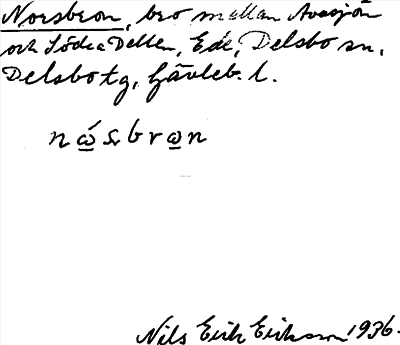 Norsbron, bro mellan Avasjön
och Södra Dellen, Ede, Delsbo sn,
Delsbo tg, Gävleb. l.
nώ̲sbrω̲n
Nils Erik Eriksson 1936.